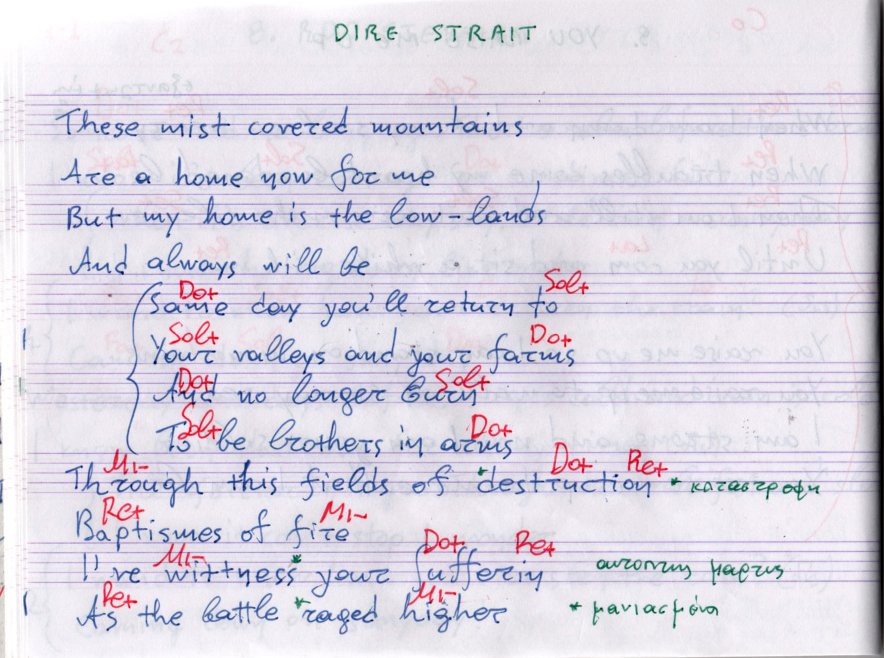 DIRE STRAIT
These mist covered mountains
Are a home now for me
But my home is the low-lands
And always will be
Do+ Sol+
Same day you'll return to
Sol+ Do+
Your valleys and your farms
Do+ Sol+
And no longer burn
Sol+ Do+
To be brothers in arms
Mi- Do+ Re+
Through this fields of *destruction * καταστροφη
Re+ Mi-
Baptismes of fire
Mi- Do+ Re+
I've wittness* your sufferin αυτοπτης μαρτυς
Re+ Mi-
As the battle *raged higher * μανιασμένα